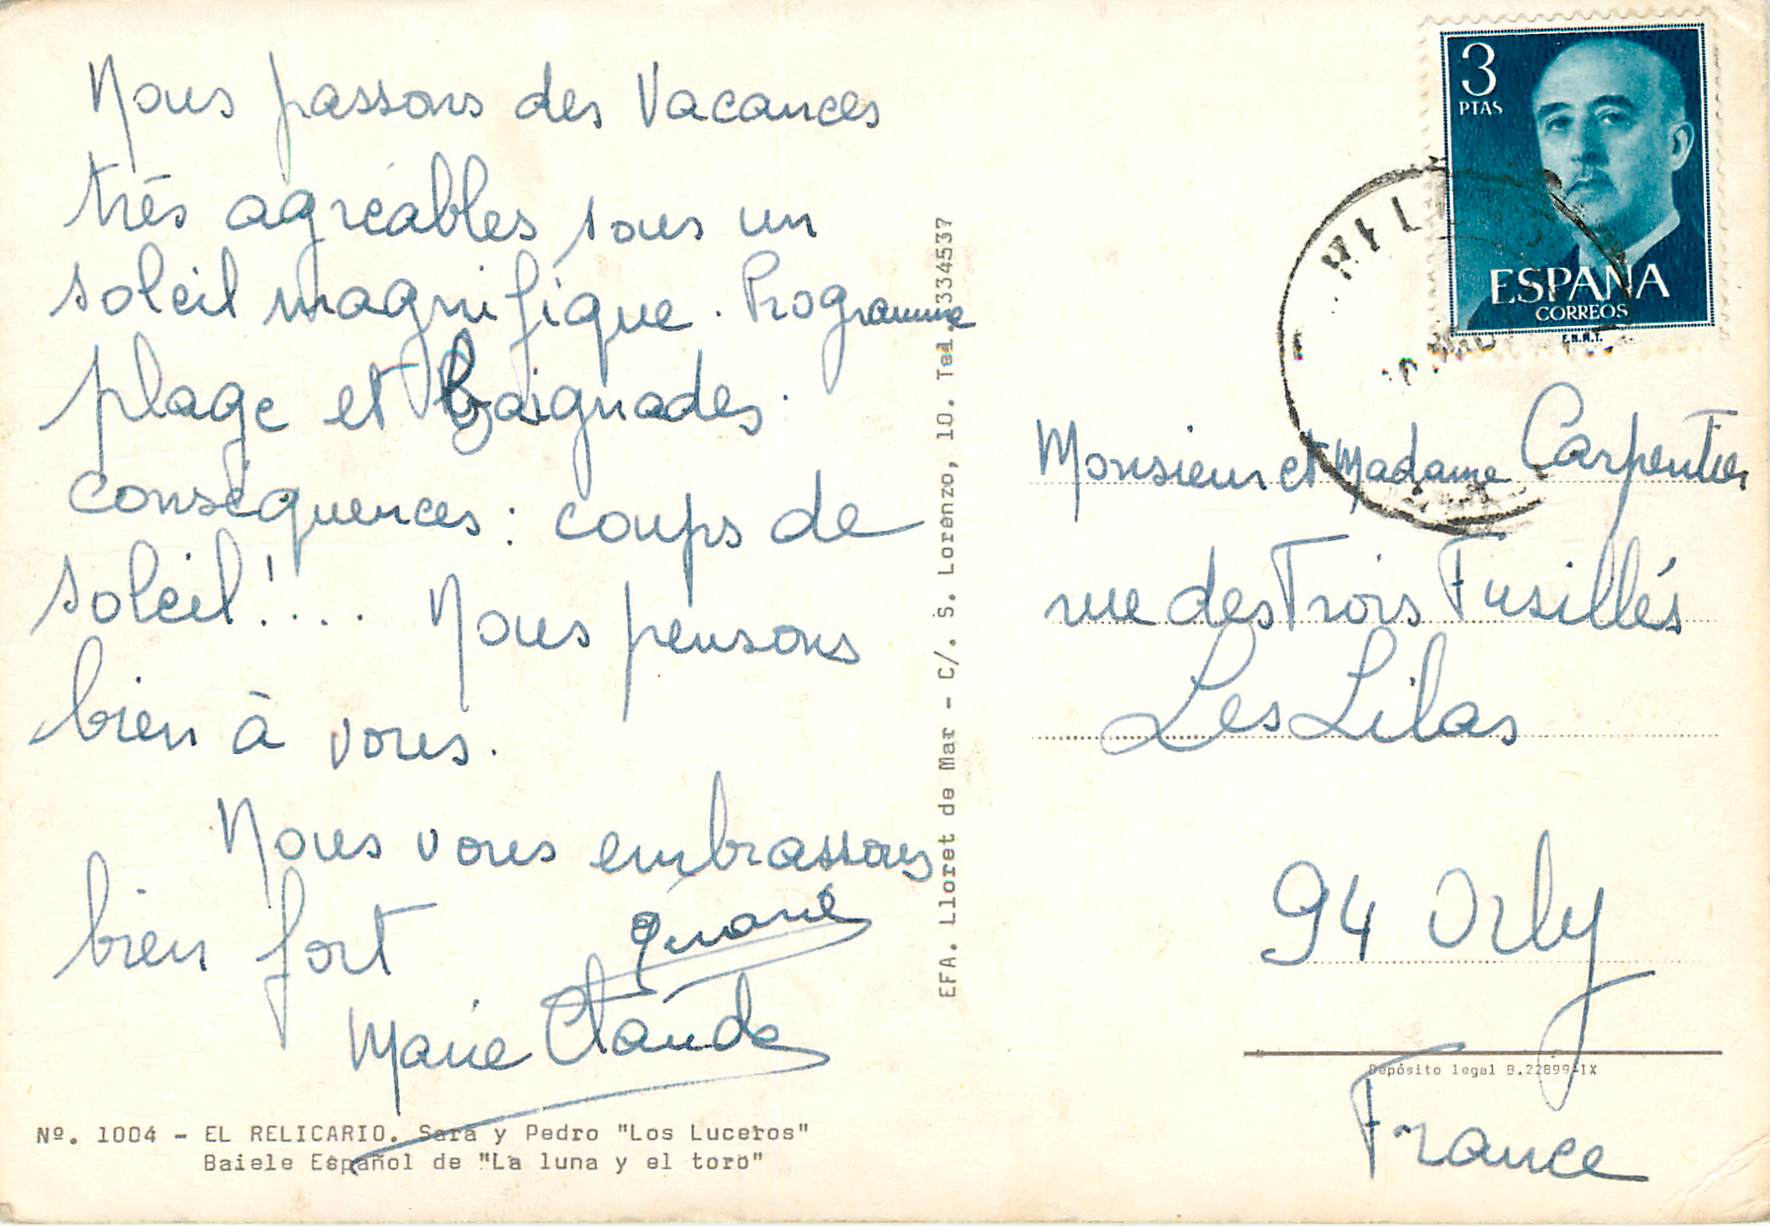 Nous passons des Vacances
très agréables sous un
soleil magnifique. Programme
plage et baignades.
conséquences : coups de
soleil!.... Nous pensons
bien à vous.
Nous vous embrassons
bien fort
Marie Claude
Nº. 1004 - EL RELICARIO. Sara y Pedro "Los Luceros"
Baiele Español de "La luna y el toro"
EFA. Lloret de Mar - C/. S. Lorenzo, 10. Tel. 334537
3
PTAS
ESPAÑA
CORREOS
F.N.M.T.
Monsieur et Madame Carpentier
rue des Trois Fusillés
Les Lilas
94 Orly
Depósito legal B.22899-IX
France